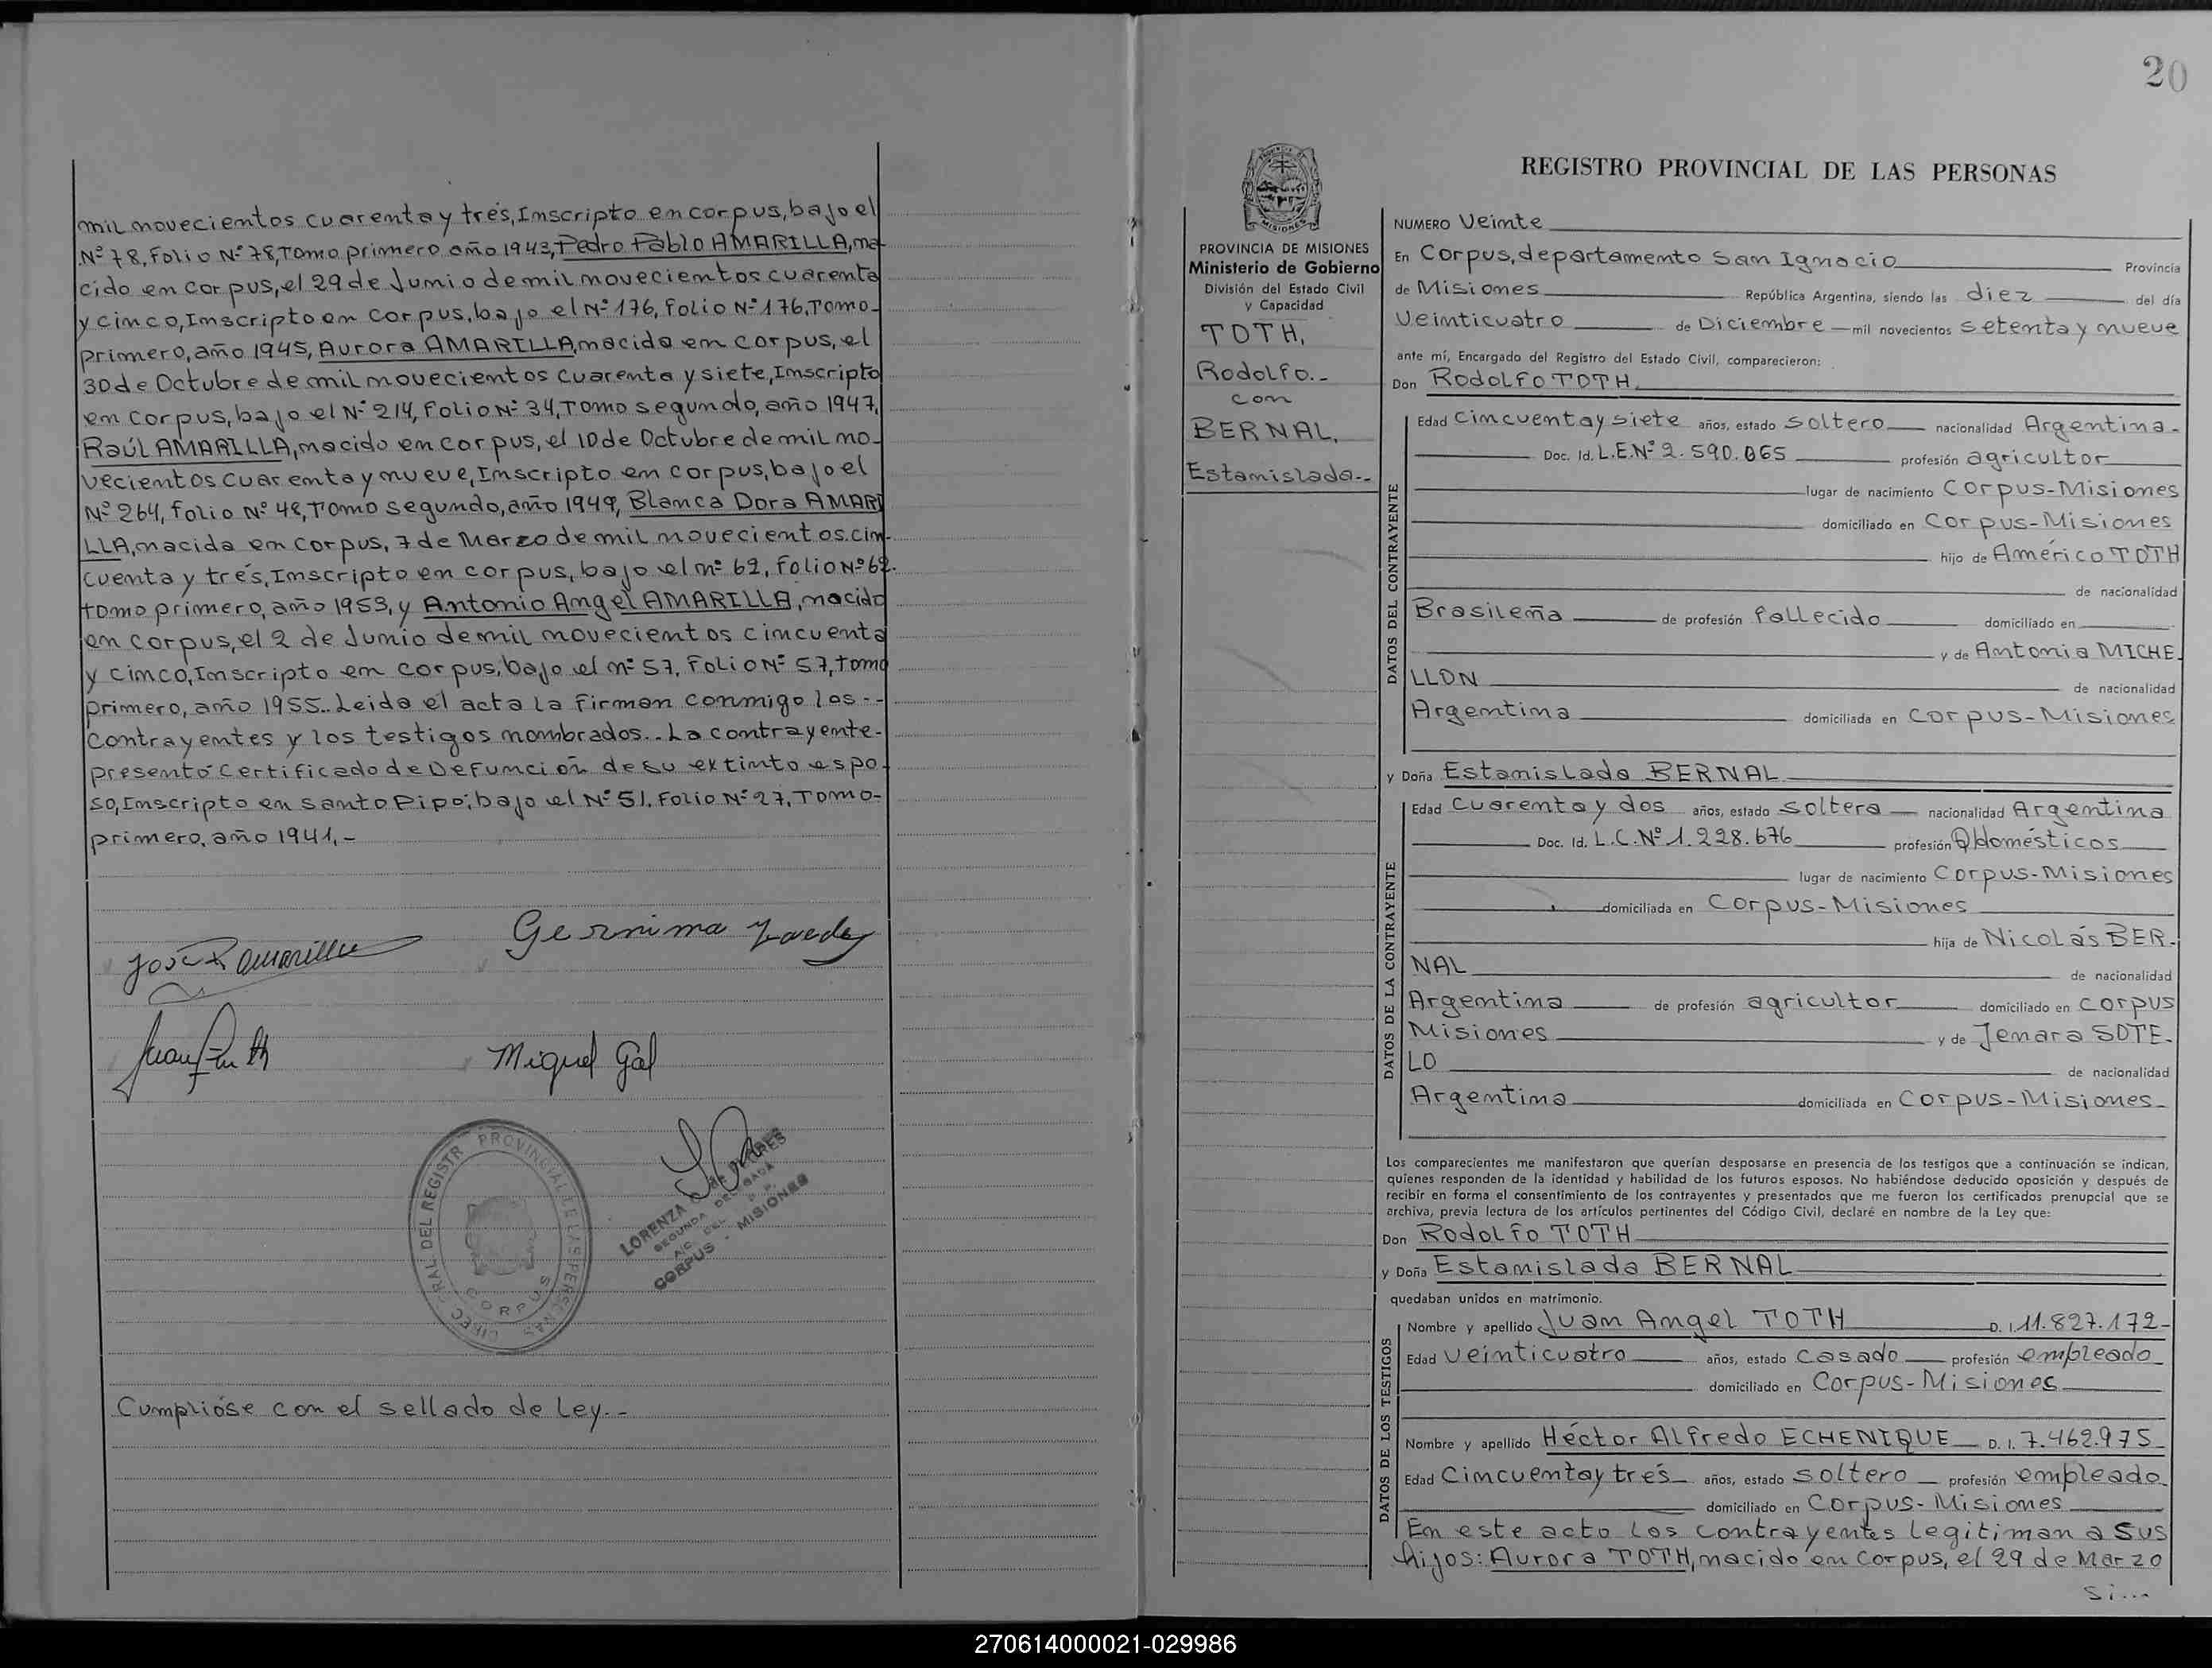 mil novecientos cuarenta y trés, Inscripto en corpus, bajo el
Nº 78, Folio Nº 78, Tomo primero año 1943, Pedro Pablo AMARILLA, na
cido en corpus, el 29 de Junio de mil novecientos cuarenta
y cinco, Inscripto en corpus, bajo el Nº 176, Folio Nº 176, Tomo-
primero, año 1945, Aurora AMARILLA, nacida en corpus, el
30 de Octubre de mil novecientos cuarenta y siete, Inscripto
en corpus, bajo el Nº 214, Folio Nº 34, Tomo segundo, año 1947,
Raúl AMARILLA, nacido en corpus, el 10 de Octubre de mil no-
vecientos cuarenta y nueve, Inscripto en corpus, bajo el
Nº 264, Folio Nº 48, Tomo segundo, año 1949, Blanca Dora AMARI
LLA, nacida en corpus, 7 de Marzo de mil novecientos cin-
cuenta y trés, Inscripto en corpus, bajo el nº 62, Folio Nº 62.
tomo primero, año 1953, y Antonio Angel AMARILLA, nacido
en corpus, el 2 de Junio de mil novecientos cincuenta
y cinco, Inscripto en corpus, bajo el nº 57, Folio Nº 57, tomo
primero, año 1955.. Leida el acta la firman conmigo los --
contrayentes y los testigos nombrados.. La contrayente-
presentó certificado de Defunción de su extinto espo-
so, Inscripto en Santo Pipó; bajo el Nº 51, Folio Nº 27, Tomo-
primero, año 1941,-
Miguel Gál
DIREC RAL DEL REGISTR PROVINCIAL DE LAS PERSONAS
CORPUS
LORENZA
SEGUNDA DELEGADA
A/C DEL R. P.
CORPUS - MISIONES
Cumplióse con el sellado de Ley.-
20
PROVINCIA DE MISIONES
Ministerio de Gobierno
División del Estado Civil
y Capacidad
TOTH,
Rodolfo.-
con
BERNAL,
Estanislada.-
REGISTRO PROVINCIAL DE LAS PERSONAS
NUMERO Veinte
En Corpus, departamento San Ignacio Provincia
de Misiones República Argentina, siendo las diez del día
Veinticuatro de Diciembre mil novecientos setenta y nueve
ante mí, Encargado del Registro del Estado Civil, comparecieron:
Don Rodolfo TOTH
DATOS DEL CONTRAYENTE
Edad Cincuenta y siete años, estado soltero nacionalidad Argentina-
Doc. Id. L.E.Nº 2.590.065 profesión agricultor
lugar de nacimiento Corpus-Misiones
domiciliado en Corpus-Misiones
hijo de Américo TOTH
de nacionalidad
Brasileña de profesión Fallecido domiciliado en
y de Antonia MICHE
LLON de nacionalidad
Argentina domiciliada en Corpus-Misiones
y Doña Estanislada BERNAL
DATOS DE LA CONTRAYENTE
Edad Cuarenta y dos años, estado soltera nacionalidad Argentina
Doc. Id. L.C.Nº 1.228.676 profesión Q/domésticos
lugar de nacimiento Corpus-Misiones
domiciliada en Corpus-Misiones
hija de Nicolás BER-
NAL de nacionalidad
Argentina de profesión agricultor domiciliado en Corpus
Misiones y de Jenara SOTE-
LO de nacionalidad
Argentina domiciliada en Corpus-Misiones-
Los comparecientes me manifestaron que querían desposarse en presencia de los testigos que a continuación se indican,
quienes responden de la identidad y habilidad de los futuros esposos. No habiéndose deducido oposición y después de
recibir en forma el consentimiento de los contrayentes y presentados que me fueron los certificados prenupcial que se
archiva, previa lectura de los artículos pertinentes del Código Civil, declaré en nombre de la Ley que:
Don Rodolfo TOTH
y Doña Estanislada BERNAL
quedaban unidos en matrimonio.
DATOS DE LOS TESTIGOS
Nombre y apellido Juan Angel TOTH D. I. 11.827.172-
Edad Veinticuatro años, estado casado profesión empleado
domiciliado en Corpus-Misiones
Nombre y apellido Héctor Alfredo ECHENIQUE D. I. 7.462.975
Edad Cincuenta y trés años, estado soltero profesión empleado
domiciliado en Corpus-Misiones
En este acto los contrayentes legitiman a sus
hijos: Aurora TOTH, nacido en Corpus, el 29 de Marzo
si...
270614000021-029986